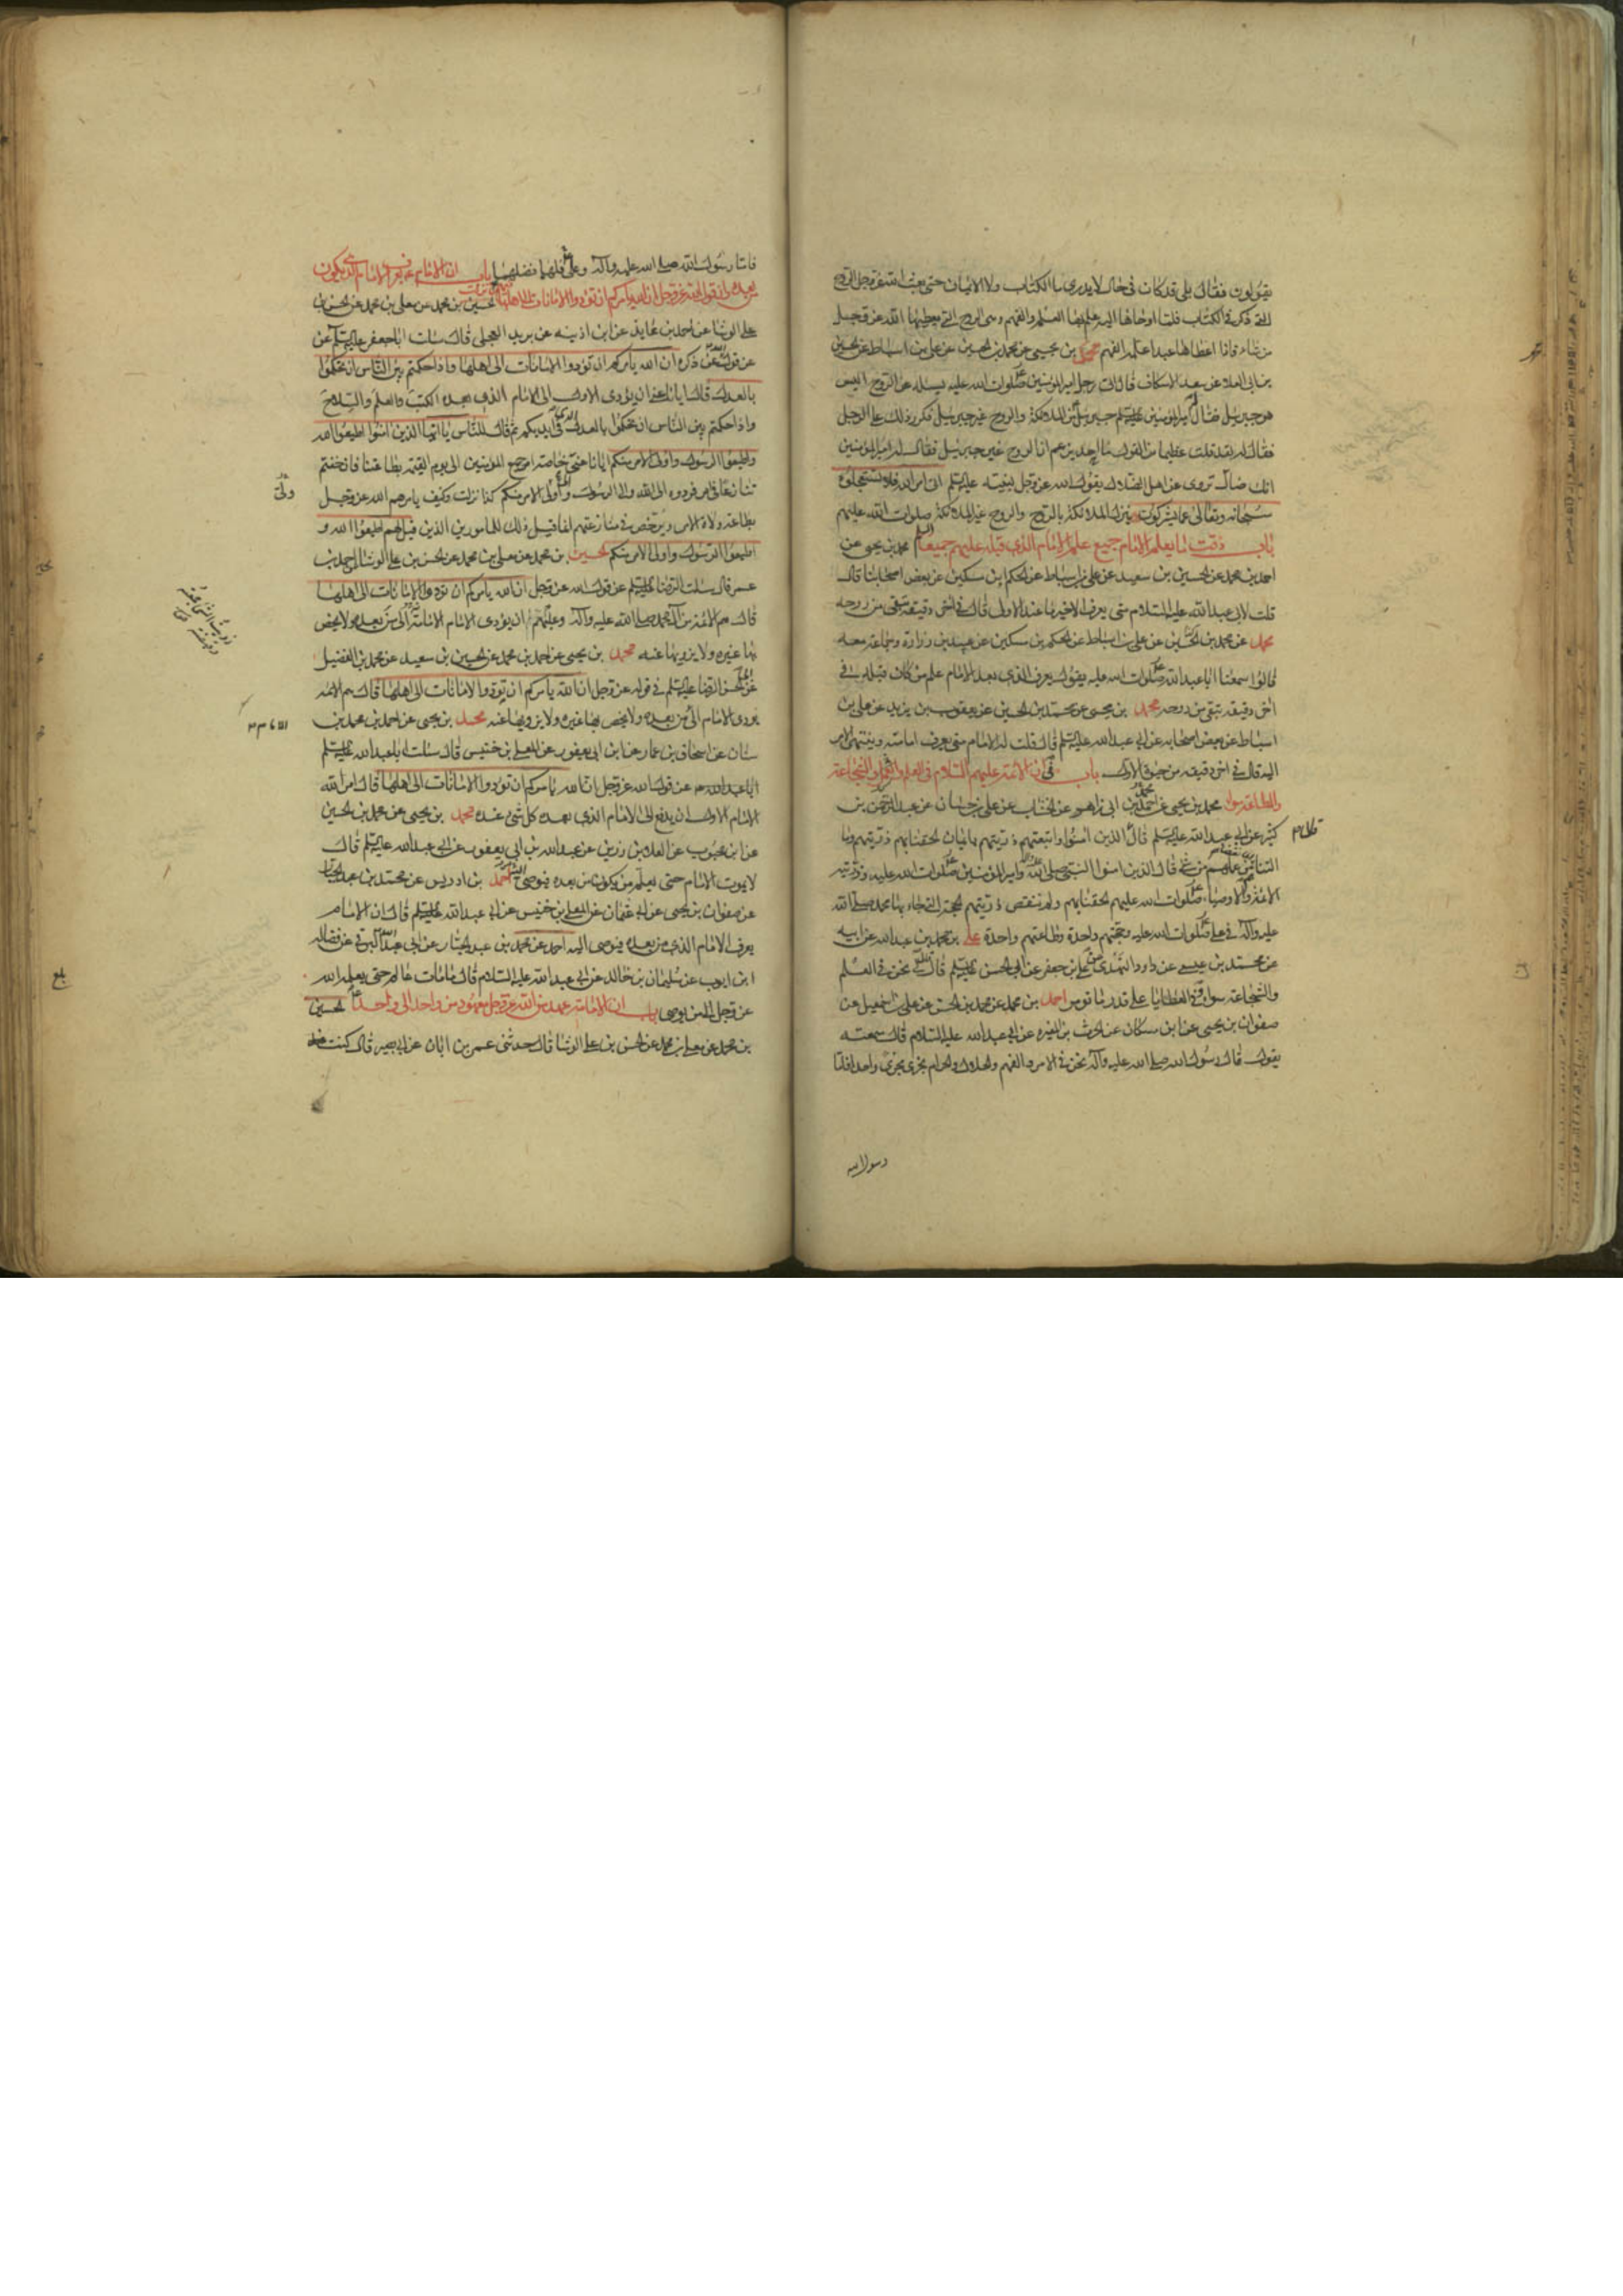 يقولون فقال بلى قد كان في حال لا يدري ما الكتاب ولا الايمان حتى بعث الله عز وجل الروح
التي ذكر في الكتاب فلما اوحاها اليه علم بها العلم والفهم وهي الروح التي يعطيها الله عز وجل
من شاء فاذا اعطاها عبدا علمه الفهم محمد بن يحيى عن محمد بن الحسين عن علي بن اسباط عن الحسين
بن ابي العلاء عن سعد الاسكاف قال اتى رجل امير المؤمنين صلوات الله عليه يسئله عن الروح اليس
هو جبرئيل فقال امير المؤمنين عليه السلم جبرئيل من الملائكة والروح غير جبرئيل فكرر ذلك على الرجل
فقال له لقد قلت عظيما من القول ما احد يزعم ان الروح غير جبرئيل فقال له امير المؤمنين
انك ضال تروي عن اهل الضلال يقول الله عز وجل لنبيه عليه السلم اتى امر الله فلا تستعجلوه
سبحانه وتعالى عما يشركون ينزل الملائكة بالروح والروح غير الملائكة صلوات الله عليهم
باب وقت ما يعلم الامام جميع علم الامام الذي قبله عليهم جميعا السلم محمد بن يحيى عن
احمد بن محمد عن الحسين بن سعيد عن علي بن اسباط عن الحكم بن مسكين عن بعض اصحابنا قال
قلت لابي عبد الله عليه السلام متى يعرف الاخير ما عند الاول قال في اخر دقيقة تبقى من روحه
محمد عن محمد بن الحسين عن علي بن اسباط عن الحكم بن مسكين عن عبيد بن زرارة وجماعة معه
قالوا سمعنا ابا عبد الله صلوات الله عليه يقول يعرف الذي بعد الامام علم من كان قبله في
اخر دقيقة تبقى من روحه محمد بن يحيى عن محمد بن الحسين عن يعقوب بن يزيد عن علي بن
اسباط عن بعض اصحابه عن ابي عبد الله عليه السلم قال قلت له الامام متى يعرف امامته وينتهي الامر
اليه قال في اخر دقيقة من حيوة الاول باب في ان الائمة عليهم السلام في العلم والشجاعة
والطاعة سواء محمد بن يحيى عن احمد بن ابي زاهر عن الخشاب عن علي بن حسان عن عبد الرحمن بن
كثير عن ابي عبد الله عليه السلم قال الذين امنوا واتبعتهم ذريتهم بايمان الحقنا بهم ذريتهم وما
التناهم من عملهم من شئ قال الذين امنوا النبي صلى الله وامير المؤمنين صلوات الله عليه وذريته
الائمة والاوصياء صلوات الله عليهم الحقنا بهم ولم ننقص ذريتهم الحجة التي جاء بها محمد صلى الله
عليه وآله في علي صلوات الله عليه وحجتهم واحدة وطاعتهم واحدة علي بن محمد بن عبد الله عن ابيه
عن محمد بن عيسى عن داود النهدي عن علي بن جعفر عن ابي الحسن عليه السلم قال نحن في العلم
والشجاعة سواء وفي العطايا على قدر ما نؤمر احمد بن محمد عن محمد بن الحسن عن علي بن اسمعيل عن
صفوان بن يحيى عن ابن مسكان عن الحرث بن المغيرة عن ابي عبد الله عليه السلام قال سمعته
يقول قال رسول الله صلى الله عليه وآله نحن في الامر والفهم والحلال والحرام نجري مجرى واحدا فاما
رسول الله
فاما رسول الله صلى الله عليه وآله وعلي فلهما فضلهما باب ان الامام يعرف الامام الذي يكون
بعده وان قول الله عز وجل ان الله يأمركم ان تؤدوا الامانات الى اهلها الحسين بن محمد عن معلى بن محمد عن الحسن بن
علي الوشا عن احمد بن عايذ عن ابن اذينة عن بريد العجلي قال سئلت ابا جعفر عليه السلم عن
عن قول الله عز ذكره ان الله يأمركم ان تؤدوا الامانات الى اهلها واذا حكمتم بين الناس ان تحكموا
بالعدل قال ايانا عنى ان يؤدي الاول الى الامام الذي بعده الكتب والعلم والسلاح
واذا حكمتم بين الناس ان تحكموا بالعدل الذي في ايديكم ثم قال للناس يا ايها الذين امنوا اطيعوا الله
واطيعوا الرسول واولي الامر منكم ايانا عنى خاصة امر جميع المؤمنين الى يوم القيمة بطاعتنا فان خفتم
تنازعا في امر فردوه الى الله والى الرسول والى اولي الامر منكم كذا نزلت وكيف يامرهم الله عز وجل
بطاعة ولاة الامر ويرخص في منازعتهم انما قيل ذلك للمامورين الذين قيل لهم اطيعوا الله و
اطيعوا الرسول واولي الامر منكم الحسين بن محمد عن معلى بن محمد عن الحسن بن علي الوشا عن احمد بن
عمر قال سئلت الرضا عليه السلم عن قول الله عز وجل ان الله يأمركم ان تؤدوا الامانات الى اهلها
قال هم الائمة من آل محمد صلى الله عليه وآله وعليهم ان يؤدي الامام الامانة الى من بعده ولا يخص
بها غيره ولا يزويها عنه محمد بن يحيى عن احمد بن محمد عن الحسين بن سعيد عن محمد بن الفضيل
عن ابي الحسن الرضا عليه السلم في قوله عز وجل ان الله يأمركم ان تؤدوا الامانات الى اهلها قال هم الائمة
يؤدي الامام الى من بعده ولا يخص بها غيره ولا يزويها عنه محمد بن يحيى عن احمد بن محمد بن
سنان عن اسحاق بن عمار عن ابن ابي يعفور عن المعلى بن خنيس قال سئلت ابا عبد الله عليه السلم
ابا عبد الله عن قول الله عز وجل ان الله يأمركم ان تؤدوا الامانات الى اهلها قال امر الله
الامام الاول ان يدفع الى الامام الذي بعده كل شئ عنده محمد بن يحيى عن محمد بن الحسين
عن ابن محبوب عن العلاء بن رزين عن عبد الله بن ابي يعفور عن ابي عبد الله عليه السلم قال
لا يموت الامام حتى يعلم من يكون من بعده فيوصي اليه احمد بن ادريس عن محمد بن عبد الجبار
عن صفوان بن يحيى عن ابي عثمان عن المعلى بن خنيس عن ابي عبد الله عليه السلم قال ان الامام
يعرف الامام الذي من بعده فيوصي اليه احمد عن محمد بن عبد الجبار عن ابي عبد الله البرقي عن فضالة
ابن ايوب عن سليمان بن خالد عن ابي عبد الله عليه السلام قال ما مات عالم حتى يعلمه الله
عز وجل الى من يوصي باب ان الامامة عهد من الله عز وجل معهود من واحد الى واحد الحسين
بن محمد عن معلى بن محمد عن الحسن بن علي الوشا قال حدثني عمر بن ابان عن ابي بصير قال كنت عنده